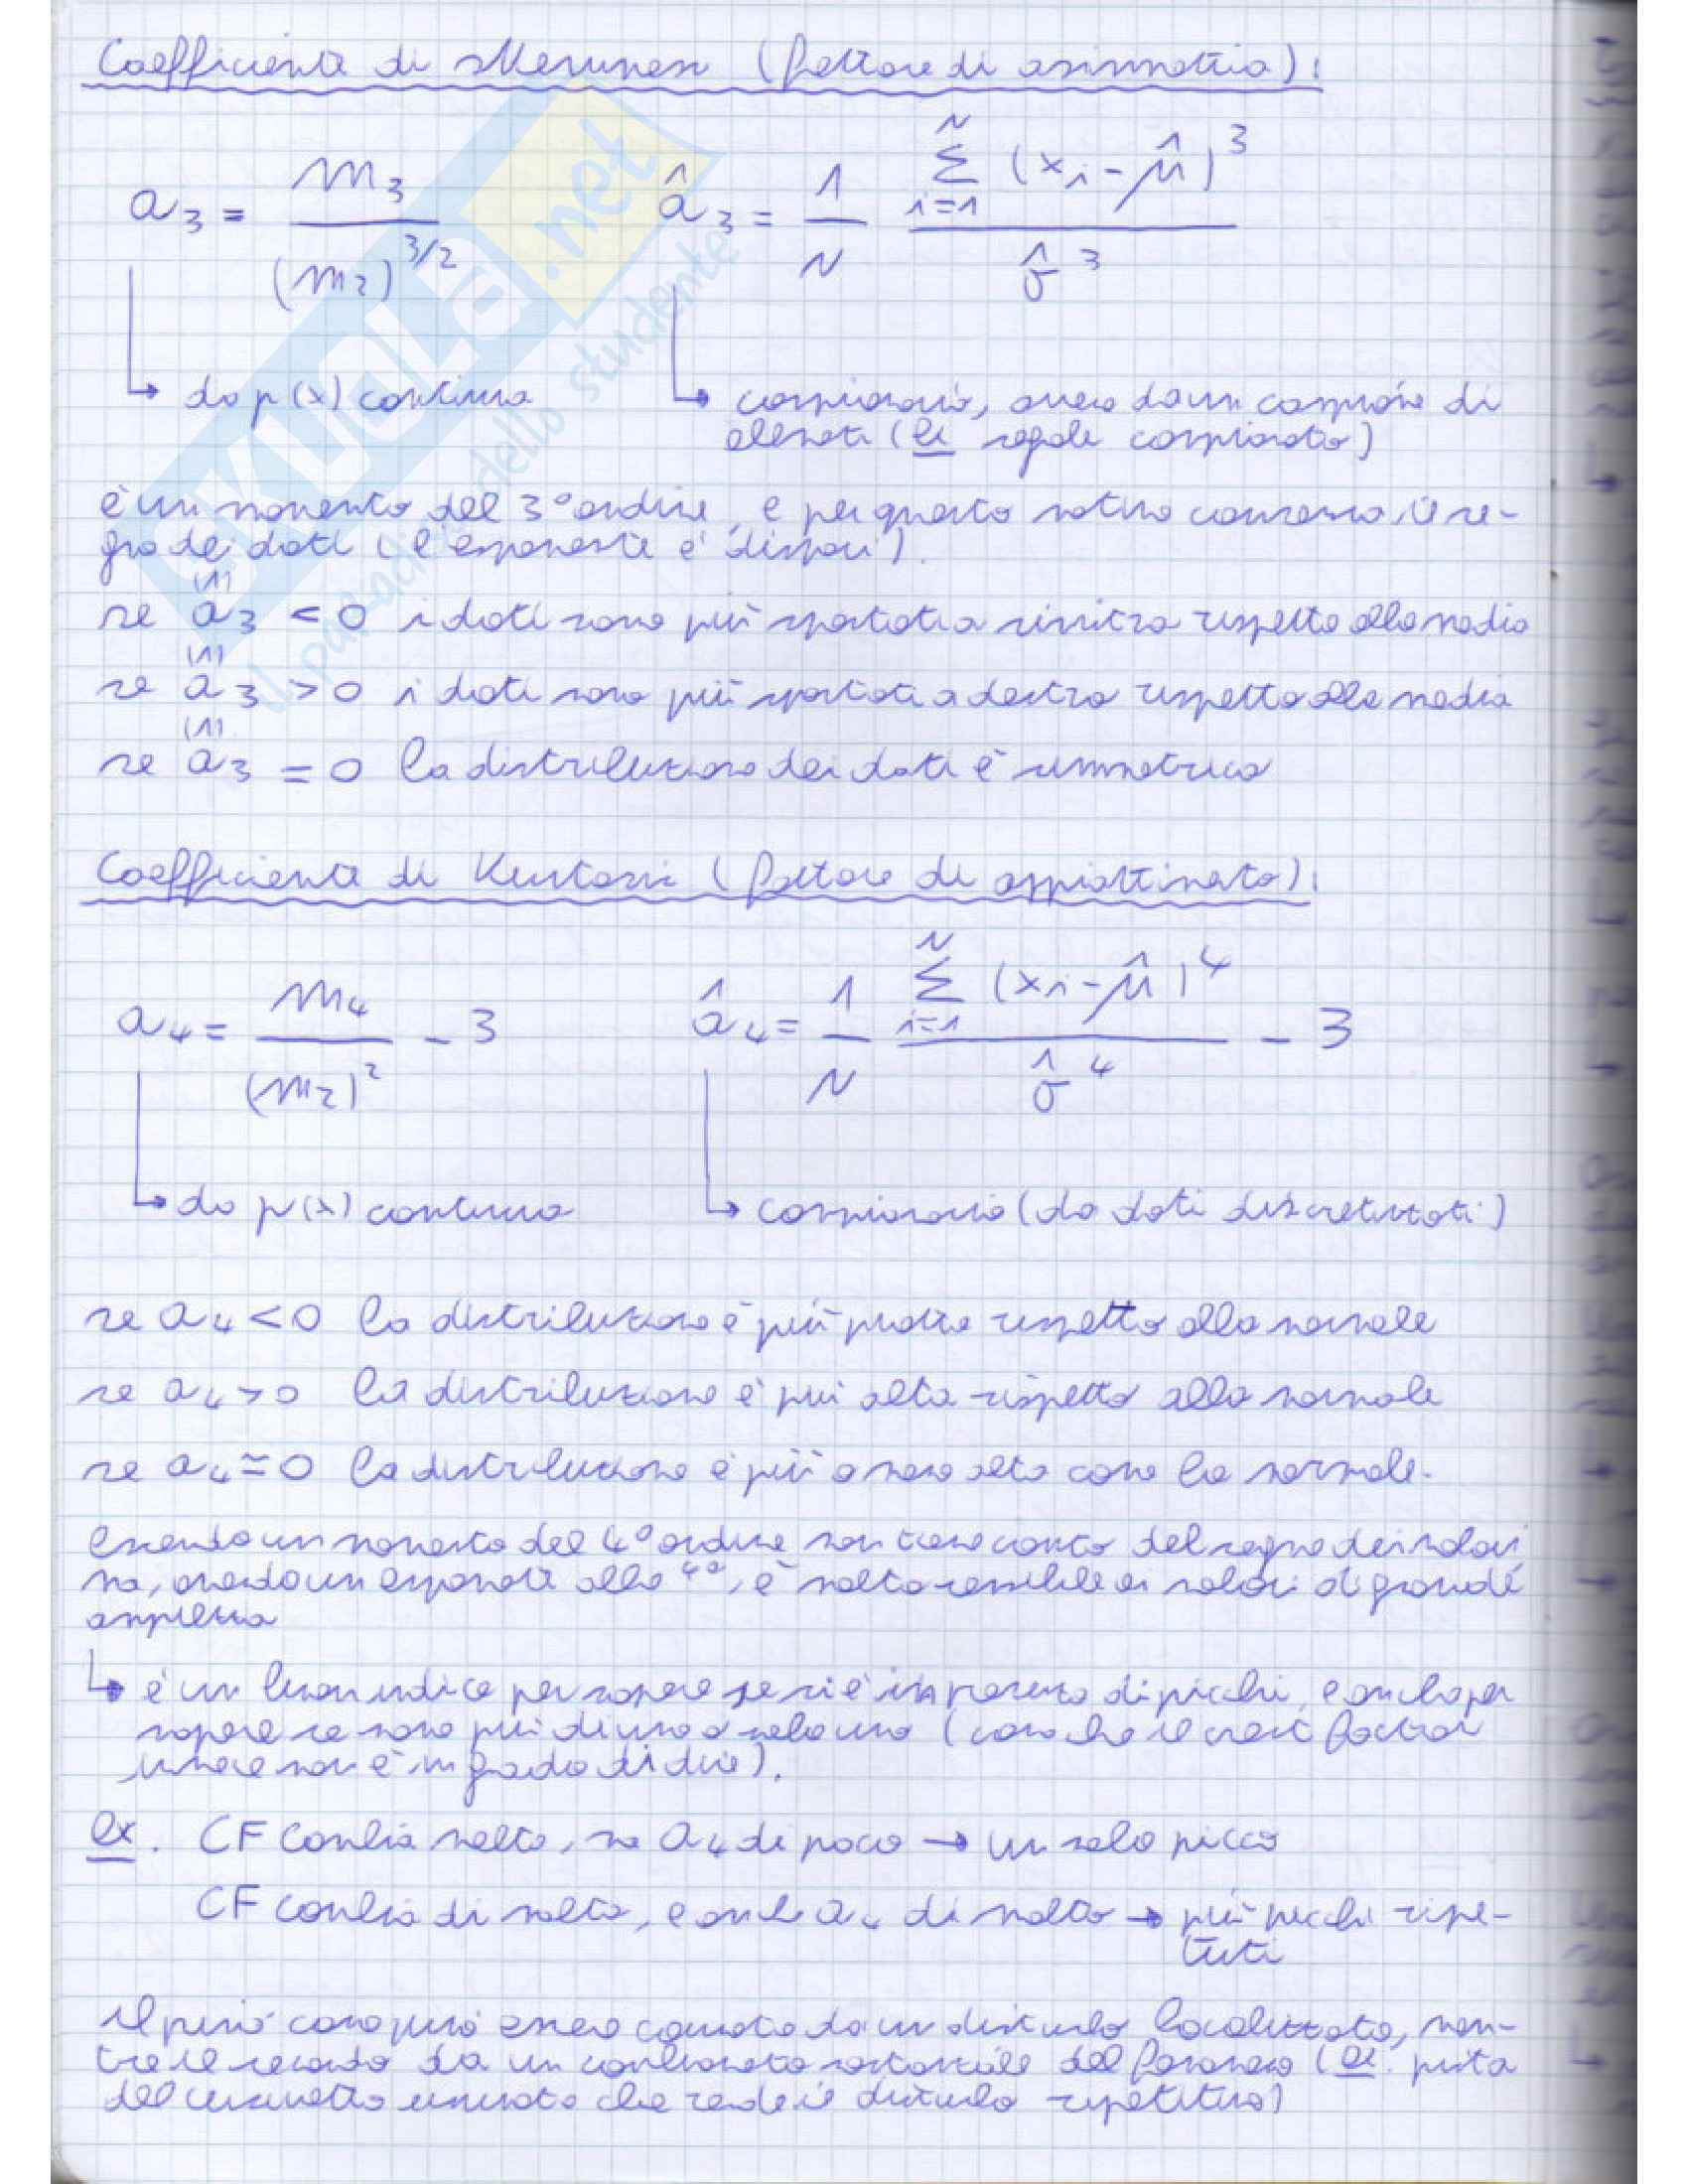 Coefficiente di skewness (fattore di asimmetria):
a₃ = m₃ / (m₂)^3/2    â₃ = 1/N Σ_{i=1}^{N} (xᵢ - μ̂)³ / σ̂³
da p(x) continua    campionario, ovvero da un campione di
elementi (es segnale campionato)
è un momento del 3° ordine, e per questo motivo conserva il se-
gno dei dati (l'esponente è dispari).
se a₃ < 0 i dati sono più spostati a sinistra rispetto alla media
(^)
se a₃ > 0 i dati sono più spostati a destra rispetto alla media
(^)
se a₃ = 0 la distribuzione dei dati è simmetrica
Coefficiente di Kurtosis (fattore di appiattimento):
a₄ = m₄ / (m₂)² - 3    â₄ = 1/N Σ_{i=1}^{N} (xᵢ - μ̂)⁴ / σ̂⁴ - 3
da p(x) continua    campionario (da dati discretizzati)
se a₄ < 0 la distribuzione è più piatta rispetto alla normale
se a₄ > 0 la distribuzione è più alta rispetto alla normale
se a₄ ≃ 0 la distribuzione è più o meno alta come la normale.
essendo un momento del 4° ordine non tiene conto del segno dei valori
ma, avendo un esponente alla 4ª, è molto sensibile ai valori di grande
ampiezza
è un buon indice per sapere se si è in presenza di picchi, e anche per
sapere se sono più di uno o solo uno (cosa che il crest factor
invece non è in grado di dire).
ex. CF cambia molto, ma a₄ di poco → un solo picco
CF cambia di molto, e anche a₄ di molto → più picchi ripe-
tuti
il primo caso può essere causato da un disturbo localizzato, men-
tre il secondo da un cambiamento sostanziale del fenomeno (es. pista
del cuscinetto usurata che rende il disturbo ripetitivo)
SKUOLA.net
il paradiso dello studente